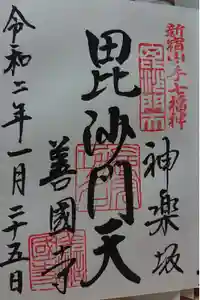 新宿山ノ手七福神
神楽坂
毘沙門天
善國寺
令和二年一月二十五日